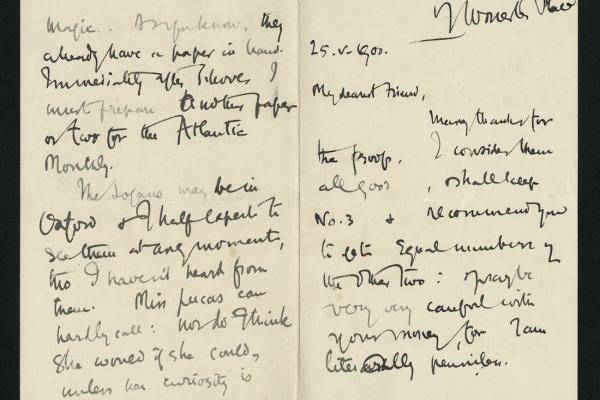 7 Worcester Place
25.V.1900.
My dearest Friend,
Many thanks for
the proofs. I consider them
all good, & shall keep
No. 3 & recommend you
to get equal numbers of
the other two: & pray be
very very careful with
your money, for I am
literally penniless.
Magic. As you know, they
already have a paper in hand.
Immediately after Schools I
must prepare another paper
or two for the Atlantic
Monthly.
The may be in
Oxford & I half expect to
see them at any moment,
tho I haven't heard from
them. Miss Lucas can
hardly call: nor do I think
she would if she could,
unless her curiosity is